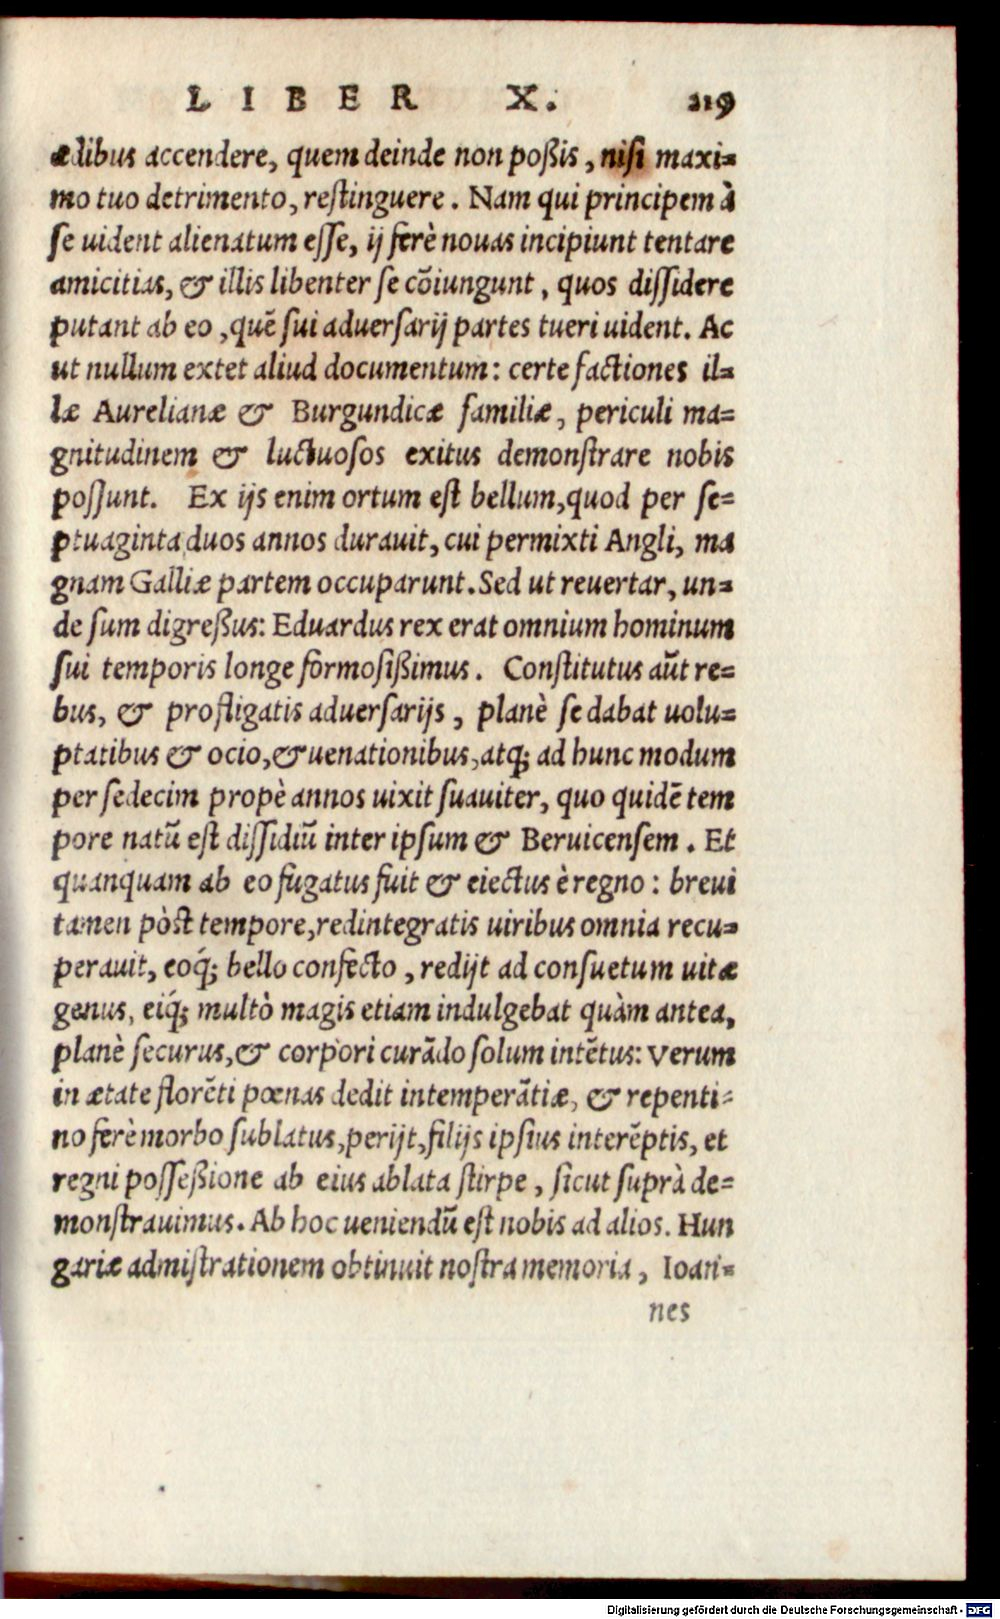 LIBER X. 219
ædibus accendere, quem deinde non poßis, nisi maxi-
mo tuo detrimento, restinguere. Nam qui principem à
se uident alienatum esse, ij ferè nouas incipiunt tentare
amicitias, & illis libenter se cōiungunt, quos dissidere
putant ab eo, quē sui aduersarij partes tueri uident. Ac
ut nullum extet aliud documentum: certe factiones il-
læ Aurelianæ & Burgundicæ familiæ, periculi ma-
gnitudinem & luctuosos exitus demonstrare nobis
possunt. Ex ijs enim ortum est bellum, quod per se-
ptuaginta duos annos durauit, cui permixti Angli, ma
gnam Galliæ partem occuparunt. Sed ut reuertar, un-
de sum digreßus: Eduardus rex erat omnium hominum
sui temporis longe formosißimus. Constitutus aūt re-
bus, & profligatis aduersarijs, planè se dabat uolu-
ptatibus & ocio, & uenationibus, atq; ad hunc modum
per sedecim propè annos uixit suauiter, quo quidē tem
pore natū est dissidiū inter ipsum & Beruicensem. Et
quanquam ab eo fugatus fuit & eiectus è regno: breui
tamen pòst tempore, redintegratis uiribus omnia recu-
perauit, eoq́; bello confecto, redijt ad consuetum uitæ
genus, eiq́; multò magis etiam indulgebat quàm antea,
planè securus, & corpori curādo solum intētus: Verum
in ætate florēti pœnas dedit intemperātiæ, & repenti-
no ferè morbo sublatus, perijt, filijs ipsius interēptis, et
regni posseßione ab eius ablata stirpe, sicut suprà de-
monstrauimus. Ab hoc ueniendū est nobis ad alios. Hun
gariæ admistrationem obtinuit nostra memoria, Ioan-
nes
Digitalisierung gefördert durch die Deutsche Forschungsgemeinschaft - DFG